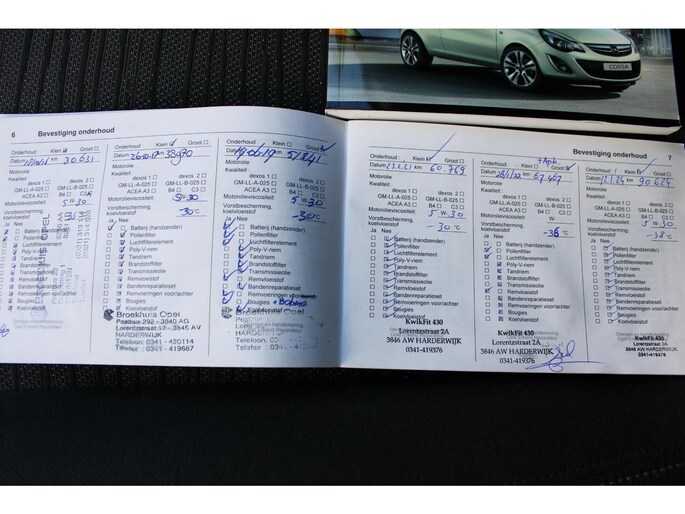 CORSA
6 Bevestiging onderhoud
Onderhoud : Klein Groot
Datum km 30.631
Motorolie
Kwaliteit
dexos 1 dexos 2
GM-LL-A-025 GM-LL-B-025
ACEA A3 B4 C3
Motorolieviscositeit: 5W-30
Vorstbescherming,
koelvloeistof
Ja Nee
Batterij (handzender)
Pollenfilter
Luchtfilterelement
Poly-V-riem
Tandriem
Brandstoffilter
Transmissieolie
Remvloeistof
Bandenreparatieset
Remvoeringen voor/achter
Bougies
Koelvloeistof
Onderhoud : Klein Groot
Datum 26-10-17 km 38970
Motorolie
Kwaliteit
dexos 1 dexos 2
GM-LL-A-025 GM-LL-B-025
ACEA A3 B4 C3
Motorolieviscositeit: 5W-30
Vorstbescherming,
koelvloeistof -30°C
Ja Nee
Batterij (handzender)
Pollenfilter
Luchtfilterelement
Poly-V-riem
Tandriem
Brandstoffilter
Transmissieolie
Remvloeistof
Bandenreparatieset
Remvoeringen voor/achter
Bougies
Koelvloeistof
Broekhuis Opel
Postbus 292 - 3840 AG
Lorentzstraat 17 - 3846 AV
HARDERWIJK
Telefoon: 0341 - 420114
Telefax : 0341 - 419687
Onderhoud : Klein Groot
Datum km 51241
Motorolie
Kwaliteit
dexos 1 dexos 2
GM-LL-A-025 GM-LL-B-025
ACEA A3 B4 C3
Motorolieviscositeit: 5W-30
Vorstbescherming,
koelvloeistof -30°C
Ja Nee
Batterij (handzender)
Pollenfilter
Luchtfilterelement
Poly-V-riem
Tandriem
Brandstoffilter
Transmissieolie
Remvloeistof
Bandenreparatieset
Remvoeringen
Bougies
Koelvloeistof
Opel
HARDERWIJK
Telefoon: 03
Telefax : 034
Bevestiging onderhoud 7
Onderhoud : Klein Groot
Datum km 60.769
Motorolie
Kwaliteit
dexos 1 dexos 2
GM-LL-A-025 GM-LL-B-025
ACEA A3 B4 C3
Motorolieviscositeit: 5W-30
Vorstbescherming,
koelvloeistof -30°C
Ja Nee
Batterij (handzender)
Pollenfilter
Luchtfilterelement
Poly-V-riem
Tandriem
Brandstoffilter
Transmissieolie
Remvloeistof
Bandenreparatieset
Remvoeringen voor/achter
Bougies
Koelvloeistof
KwikFit 430
Lorentzstraat 2A
3846 AW HARDERWIJK
0341-419376
+Apk
Onderhoud : Klein Groot
Datum km 67.467
Motorolie
Kwaliteit
dexos 1 dexos 2
GM-LL-A-025 GM-LL-B-025
ACEA A3 B4 C3
Motorolieviscositeit: W-
Vorstbescherming,
koelvloeistof -36°C
Ja Nee
Batterij (handzender)
Pollenfilter
Luchtfilterelement
Poly-V-riem
Tandriem
Brandstoffilter
Transmissieolie
Remvloeistof
Bandenreparatieset
Remvoeringen voor/achter
Bougies
Koelvloeistof
KwikFit 430
Lorentzstraat 2A
3846 AW HARDERWIJK
0341-419376
Onderhoud : Klein Groot
Datum 12.1.24 km 90624
Motorolie
Kwaliteit
dexos 1 dexos 2
GM-LL-A-025 GM-LL-B-025
ACEA A3 B4 C3
Motorolieviscositeit: 5W-30
Vorstbescherming,
koelvloeistof
Ja Nee
Batterij (handzender)
Pollenfilter
Luchtfilterelement
Poly-V-riem
Tandriem
Brandstoffilter
Transmissieolie
Remvloeistof
Bandenreparatieset
Remvoeringen voor/achter
Bougies
Koelvloeistof
KwikFit 430
Lorentzstraat 2A
3846 AW HARDERWIJK
0341-419376